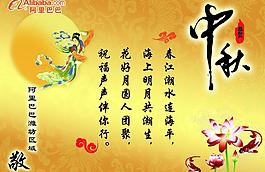 Alibaba.com
阿里巴巴
中秋
春江潮水连海平，
海上明月共潮生，
花好月圆人团聚，
祝福声声伴你行。
阿里巴巴潍坊区域
敬